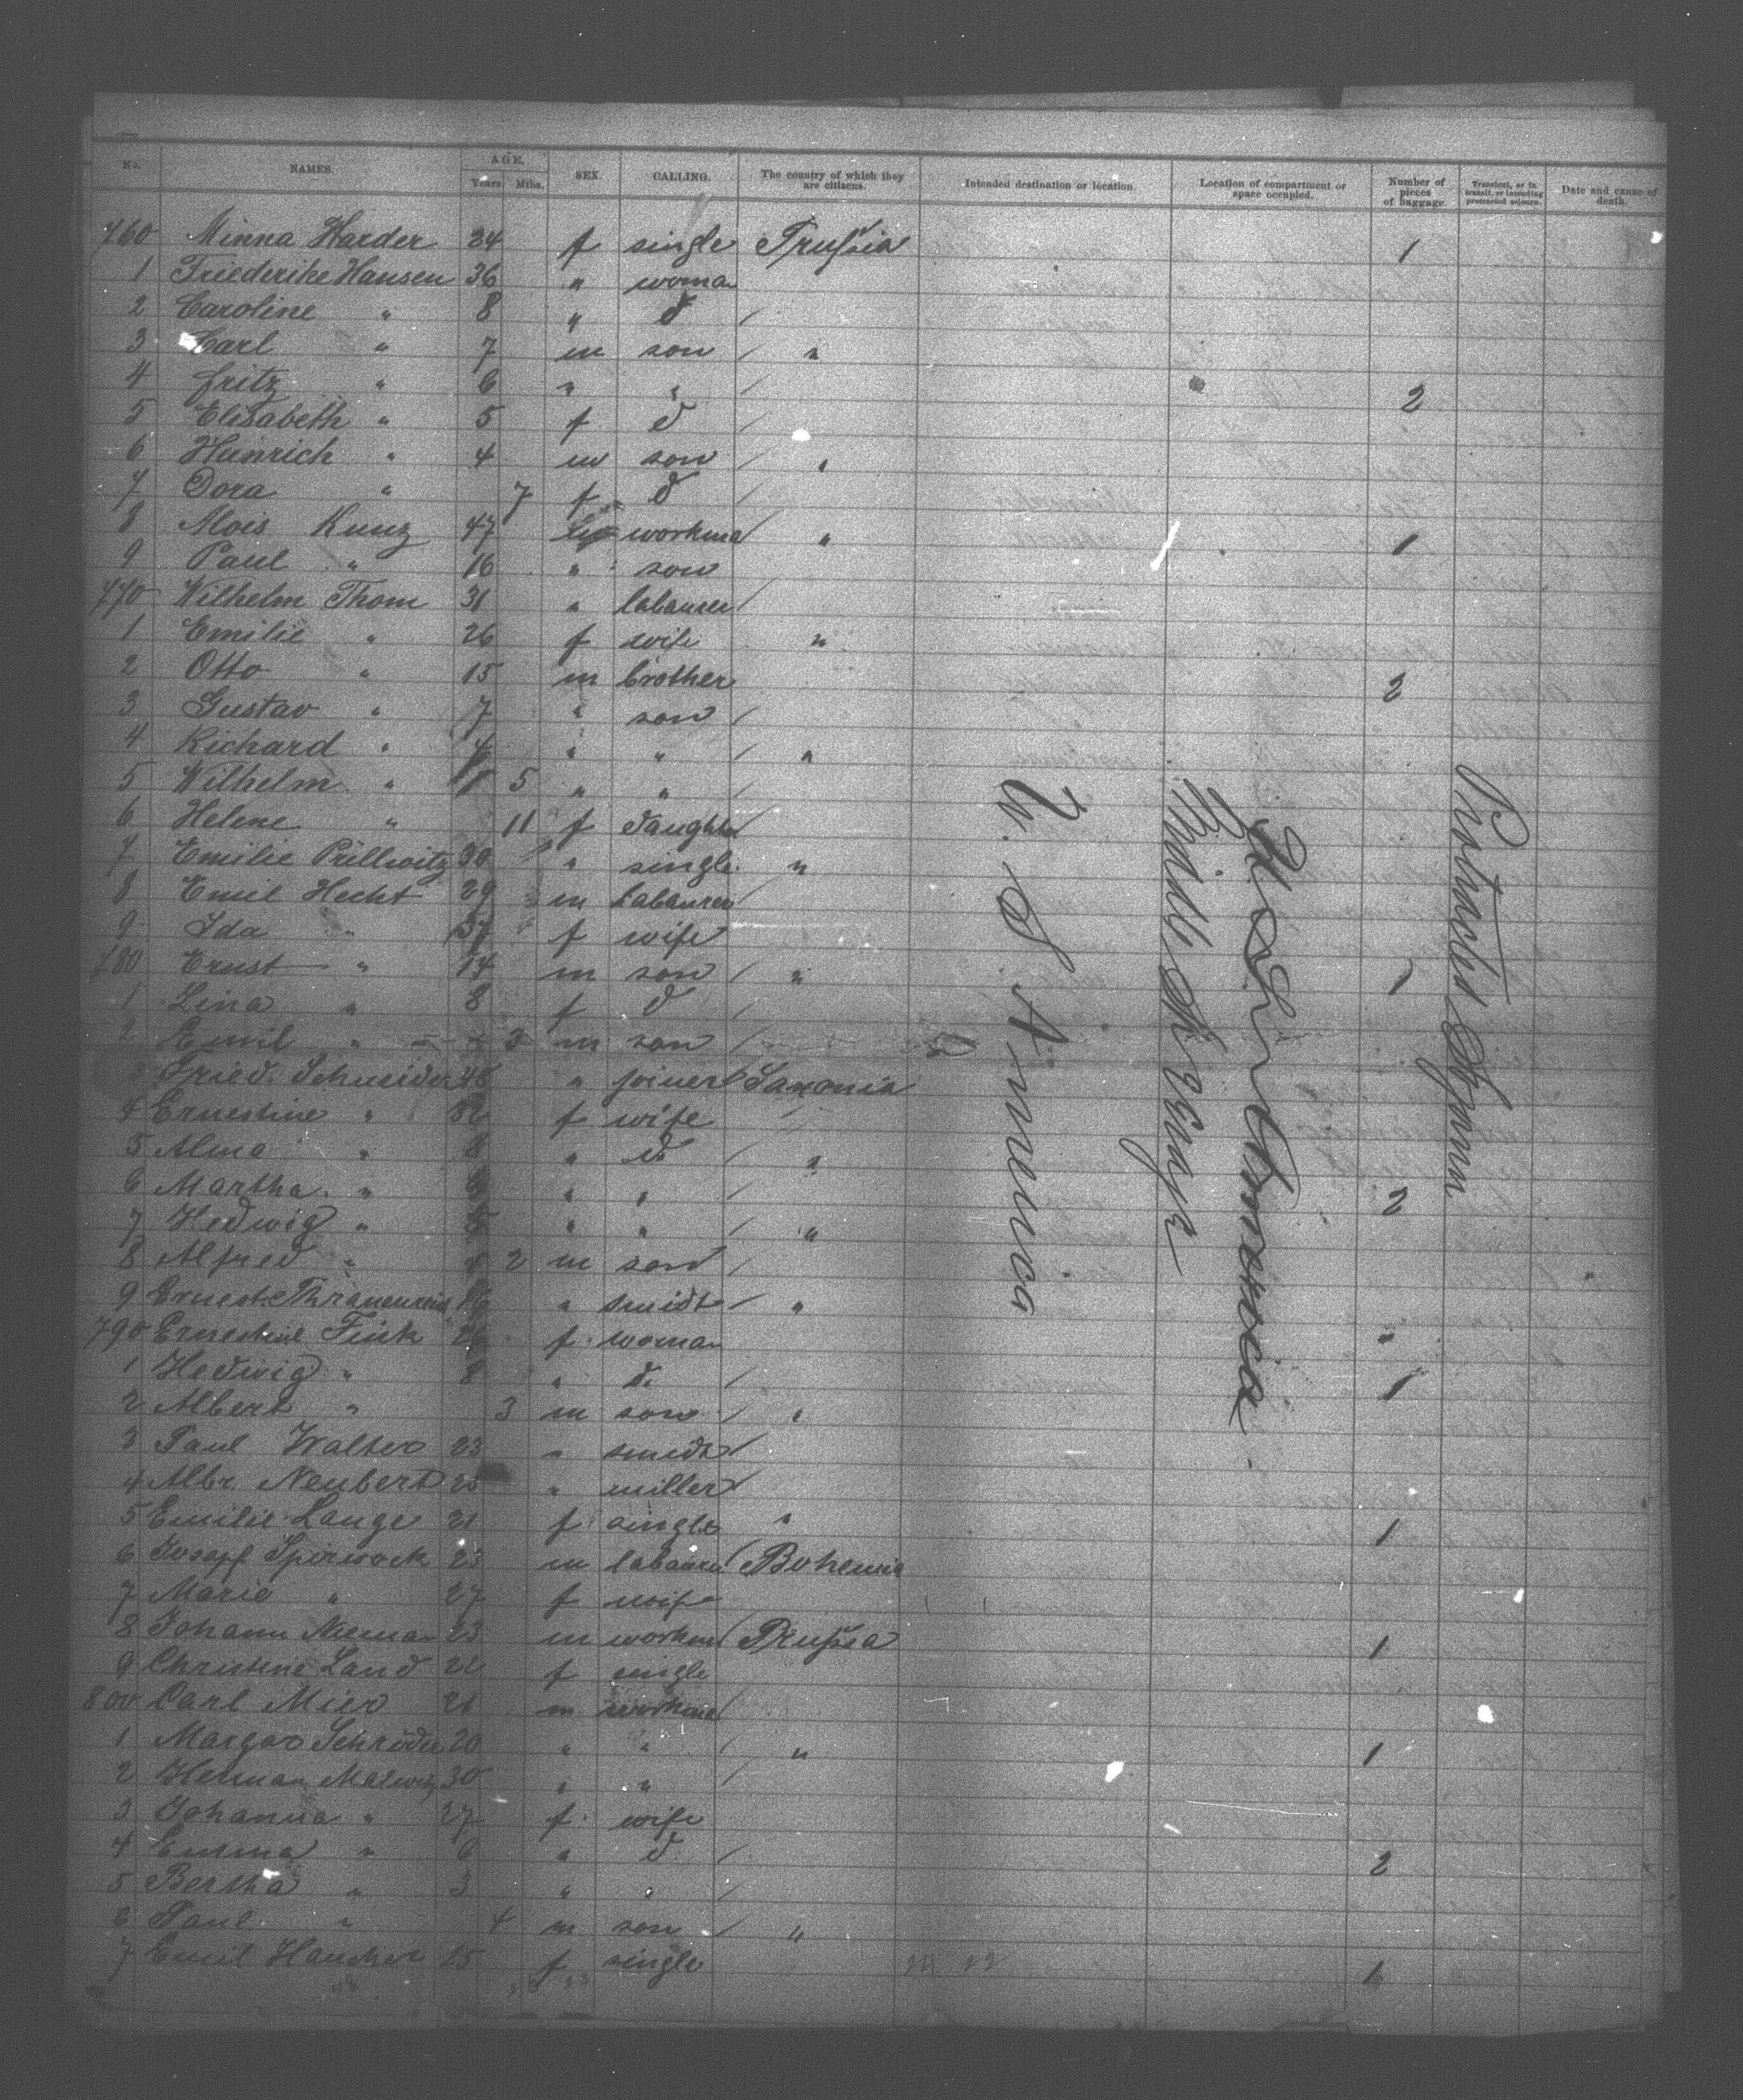 No. NAMES. AGE. Years. Mths. SEX. CALLING. The country of which they are citizens. Intended destination or location. Location of compartment or space occupied. Number of pieces of baggage. Transient, or in transit, or intending protracted sojourn. Date and cause of death.
760 Minna Harder 24 f single Prußia 1
1 Friederike Hansen 36 " woman
2 Caroline " 8 " d /
3 Carl " 7 m son / "
4 Fritz " 6 " " / 2
5 Elisabeth " 5 f d /
6 Heinrich " 4 m son / "
7 Dora " 7 f d /
8 Alois Kunz 47 workma / " 1
9 Paul " 16 " son
770 Wilhelm Thom 31 " labaurer /
1 Emilie " 26 f wife "
2 Otto " 15 m brother 2
3 Gustav " 7 " son /
4 Richard " 4 " " / "
5 Wilhelm " 5 " " /
6 Helene " 11 f daughter /
7 Emilie Prillwitz 30 " single "
8 Emil Hecht 29 m labaurer /
9 Ida " 37 f wife
780 Ernst " 14 m son / " 1
1 Lina " 8 f d /
2 Emil " 3 m son /
Fried. Schneider 48 " joiner / Saxonia
4 Ernestine " f wife
5 Alma " 8 " d. / "
6 Martha " 6 " " / 2
7 Hedwig " " " / "
8 Alfred " 2 m son /
9 Ernest " smidt / "
790 Ernestine Fink f woman "
1 Hedwig " 8 " d. / 1
2 Albert " 3 m son / "
3 Paul Walter 23 " smidt /
4 Albr. Neubert " miller /
5 Emilie Lange 21 f single " 1
6 Josepf 23 m labaurer / Bohemia
7 Marie " 27 f wife
8 Johann Nieman 23 m workm / Prußia 1
9 Christine Land f single
800 Carl Mier 21 m workma /
1 Margar Schröder 20 " " / " 1
2 Herman 30 " " /
3 Johanna " 27 f wife
4 Emma " 6 " d. / 2
5 Bertha " 3 " " /
6 Paul " 4 m son / "
7 Emil 15 f single 1
U. S. America
Protracted Sojourn